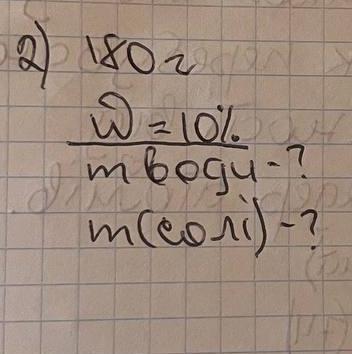 2) 180 г
ω = 10%
m води - ?
m(солі) - ?